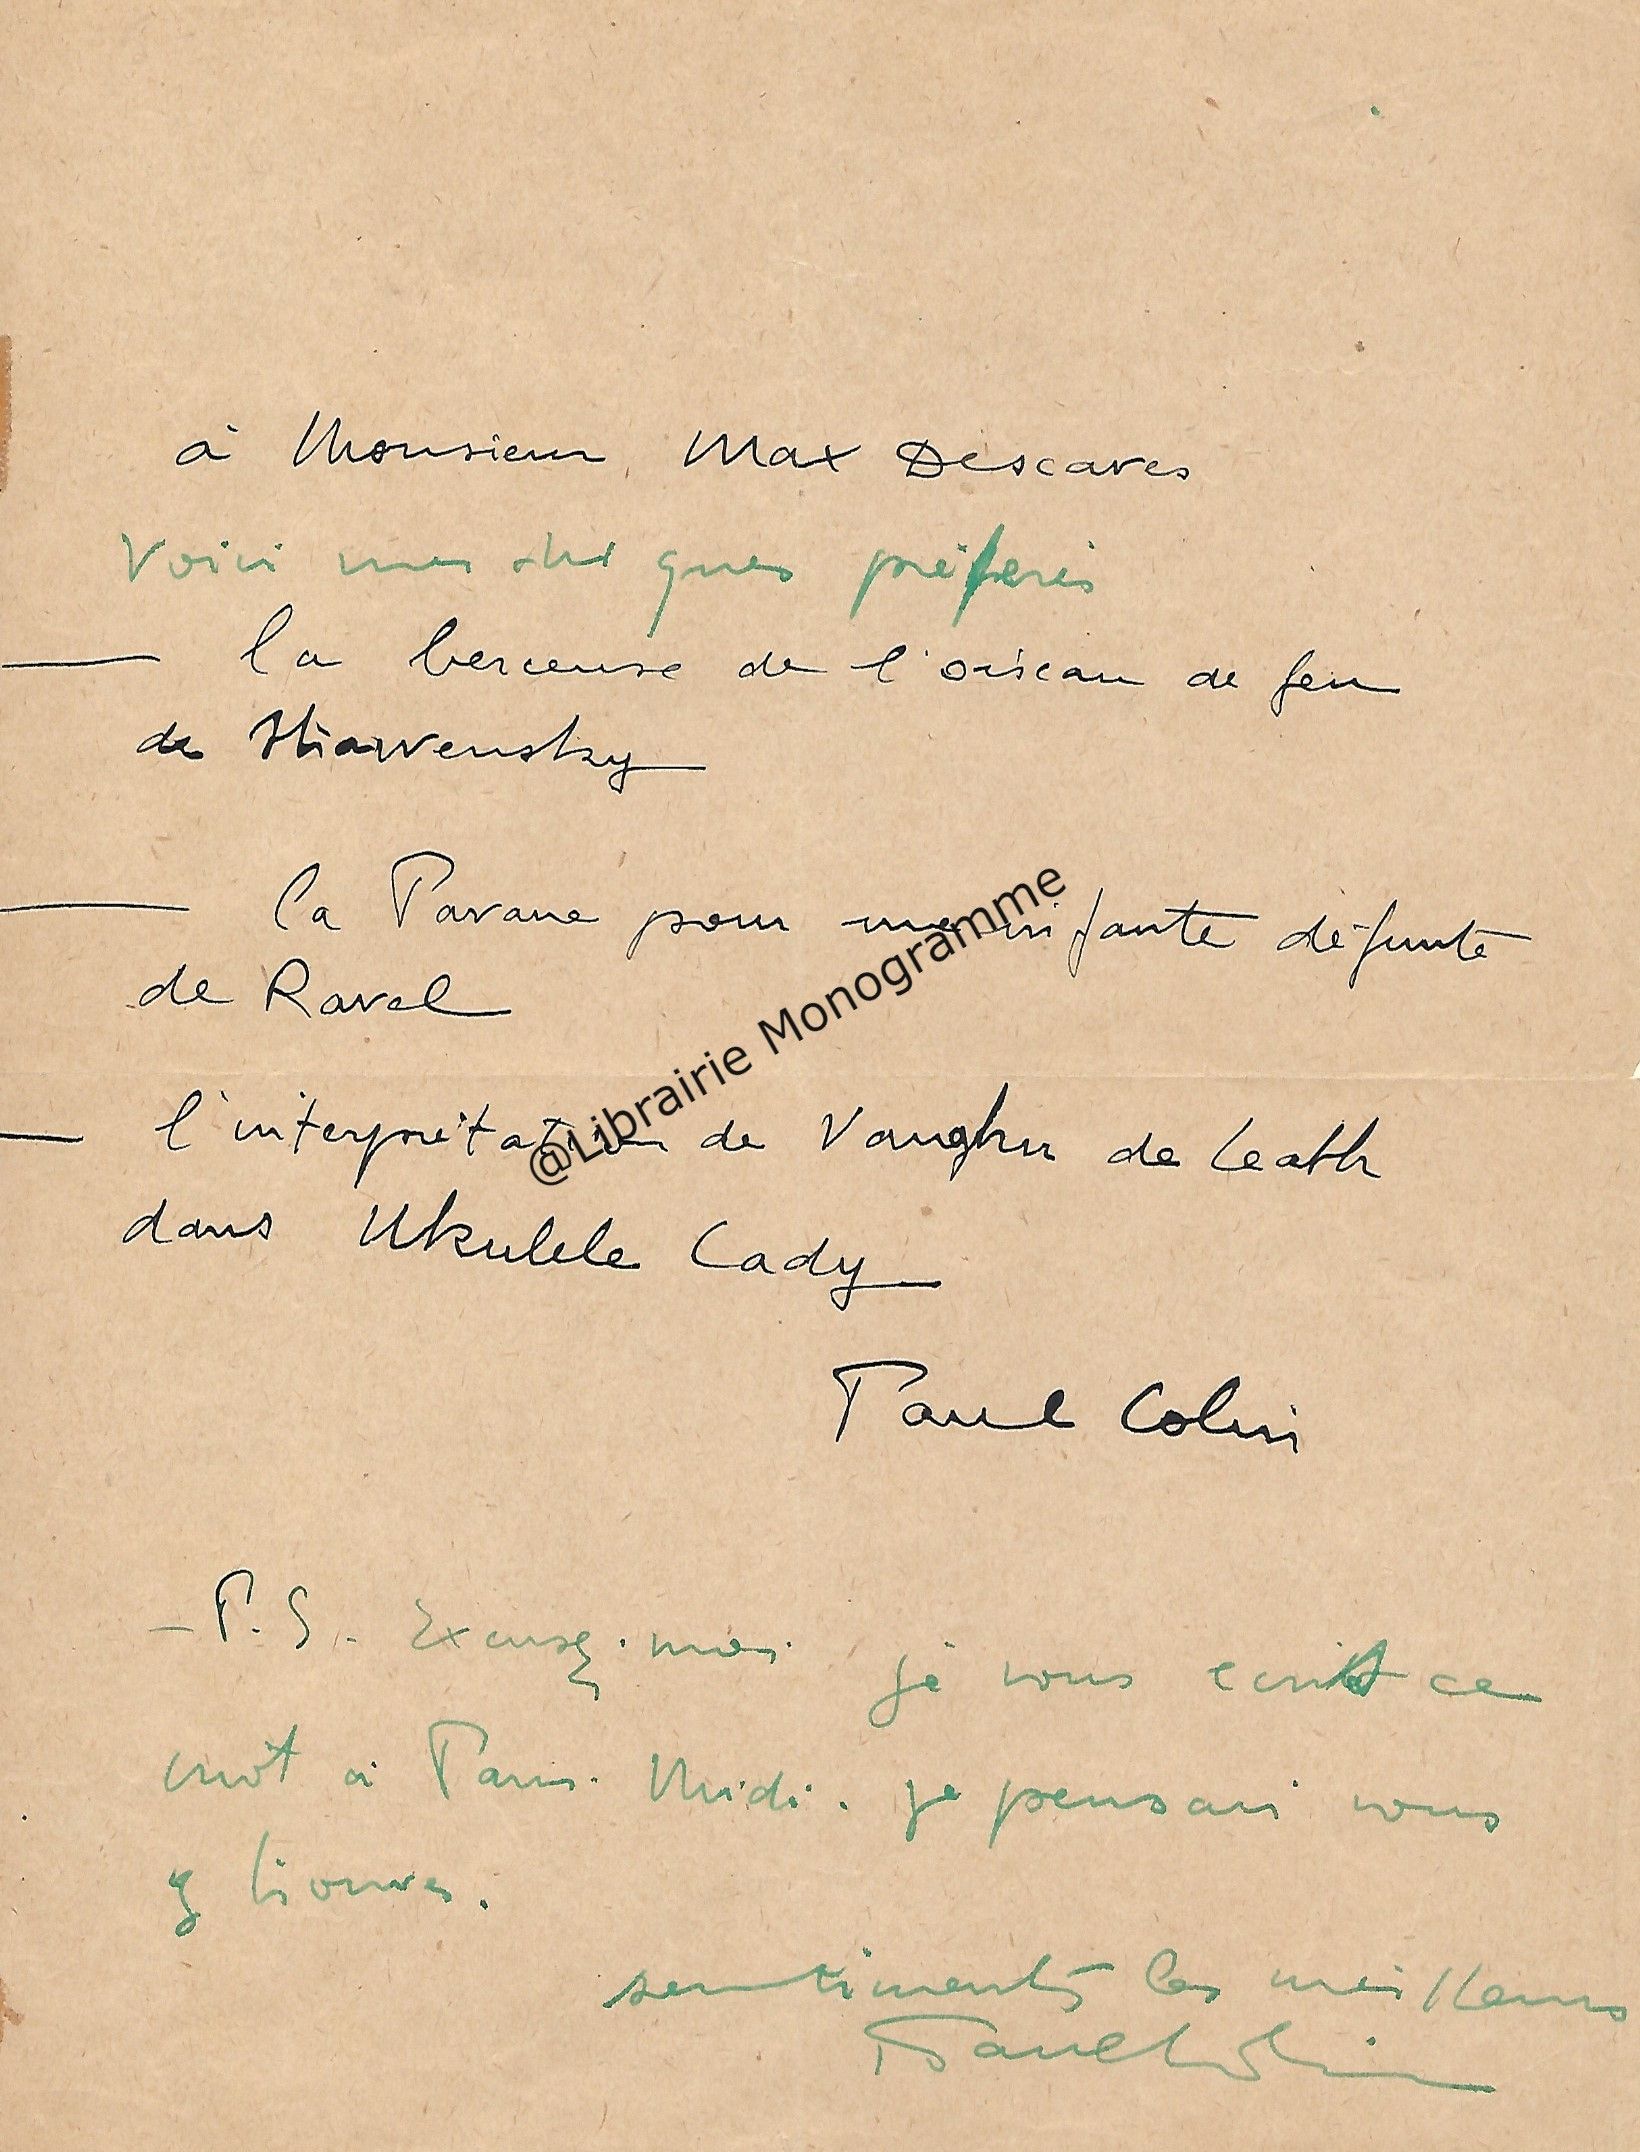 à Monsieur Max Descaves
Voici mes disques préférés
— la berceuse de l'oiseau de feu
de Strawensky
— la Pavane pour une infante défunte
de Ravel
— l'interprétation de Vaughn de Leath
dans Ukulele Lady
Paul Colin
- P.S. Excusez-moi je vous ecrit ce
mot à Paris-Midi. je pensais vous
y trouver.
sentiments les meilleurs
Paul Colin
@Librairie Monogramme